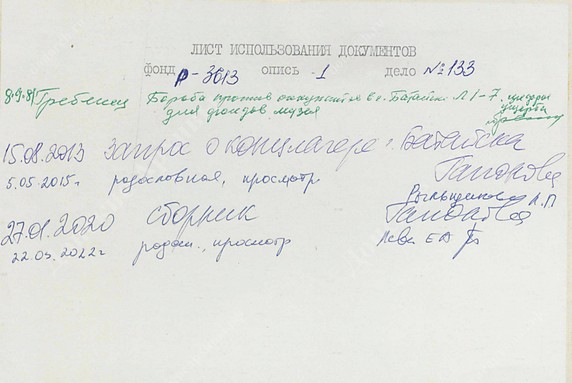 ЛИСТ ИСПОЛЬЗОВАНИЯ ДОКУМЕНТОВ
фонд Р-3613 опись 1 дело №133
8.9.81 Гребенец Борьба против оккупантов в г. Батайске Л 1-7
для фондов музея
15.08.2013 Запрос о концлагере г. Батайска
5.05.2015г родословная, просмотр
27.01.2020 сборник
22.03.2022г родосл., просмотр Лева Е А